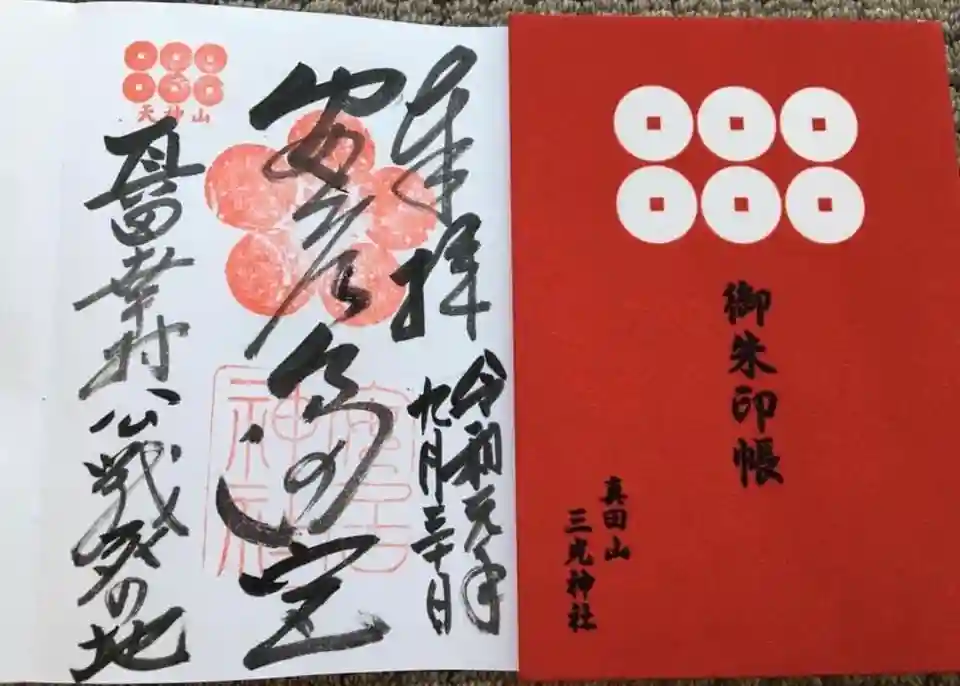 御朱印帳
真田山
三光神社
奉拝
令和元年
九月三十日
安居天満宮
天神山
真田幸村公戦死の地
安居
神社